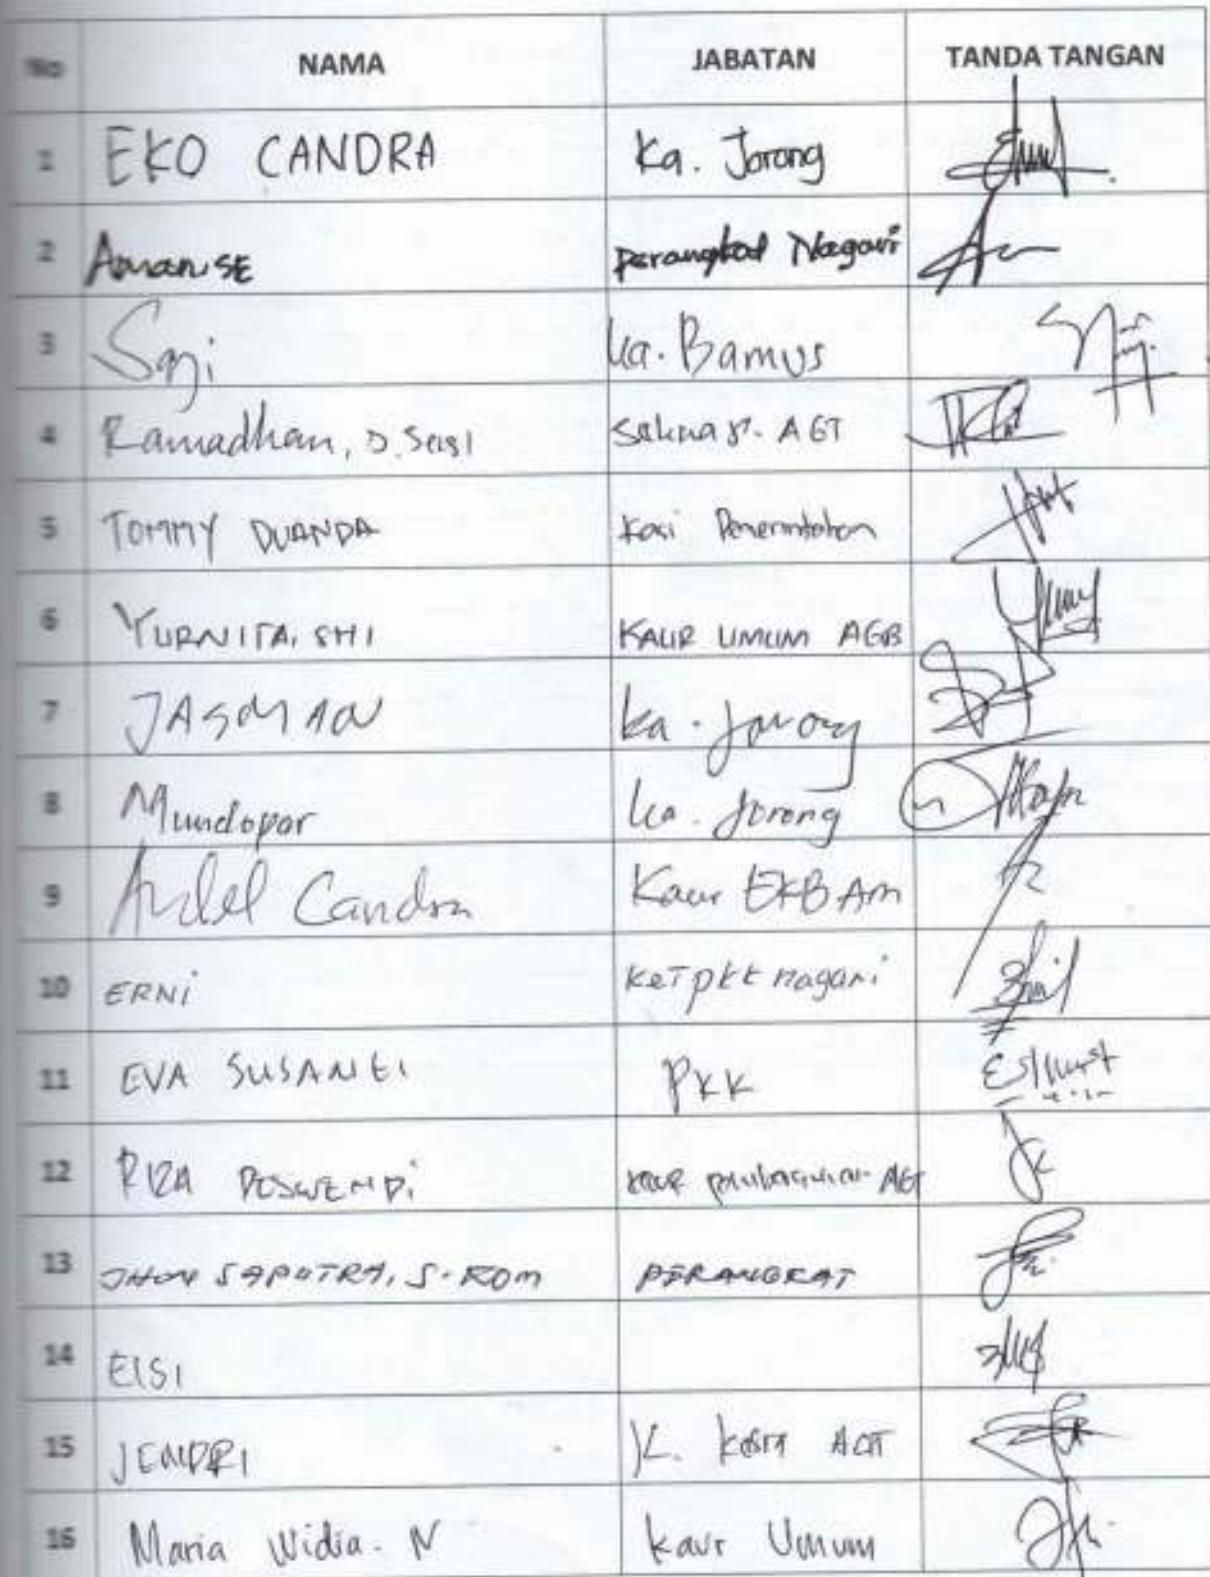 No NAMA JABATAN TANDA TANGAN
1 EKO CANDRA Ka. Jorong
2 Aman, SE Perangkat Nagari
3 Ka. Bamus
4 Ramadhan, AGT
5 TOMMY DUANDA Kasi Pemerintahan
6 YURNITA, SHI KAUR UMUM AGB
7 JASMAN Ka. Jorong
8 Mundopar Ka. Jorong
9 Candra Kaur
10 ERNi KET PKK nagari
11 EVA SUSANTI PKK
12 RIZA KAUR AGT
13 JHON SAPUTRA, S.KOM PERANGKAT
14 ELSI
15 JENDRI K.
16 Maria Widia. N Kaur Umum